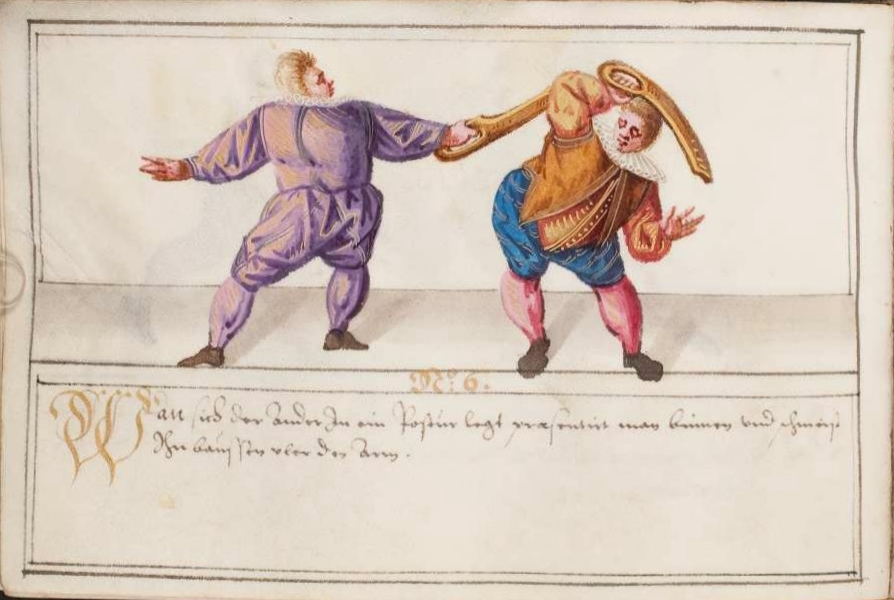 No: 6.
Wan sich der ander In ein Postur legt præsentirt man binnen vnd schmeist
Ihn baussen vber den Arm.